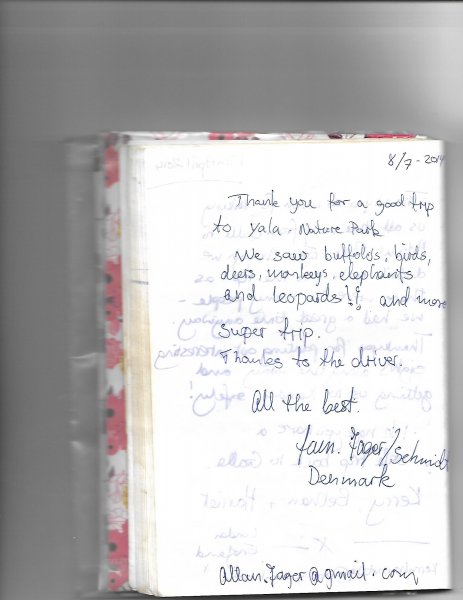 8/7-2014
Thank you for a good trip
to Yala. Nature Park
We saw buffolds, birds,
deers, monkeys, elephants
and leopards!! and more
Super trip.
Thanks to the driver.
All the best.
Fager/Schmidt
Denmark
Allan.Fager@gmail.com